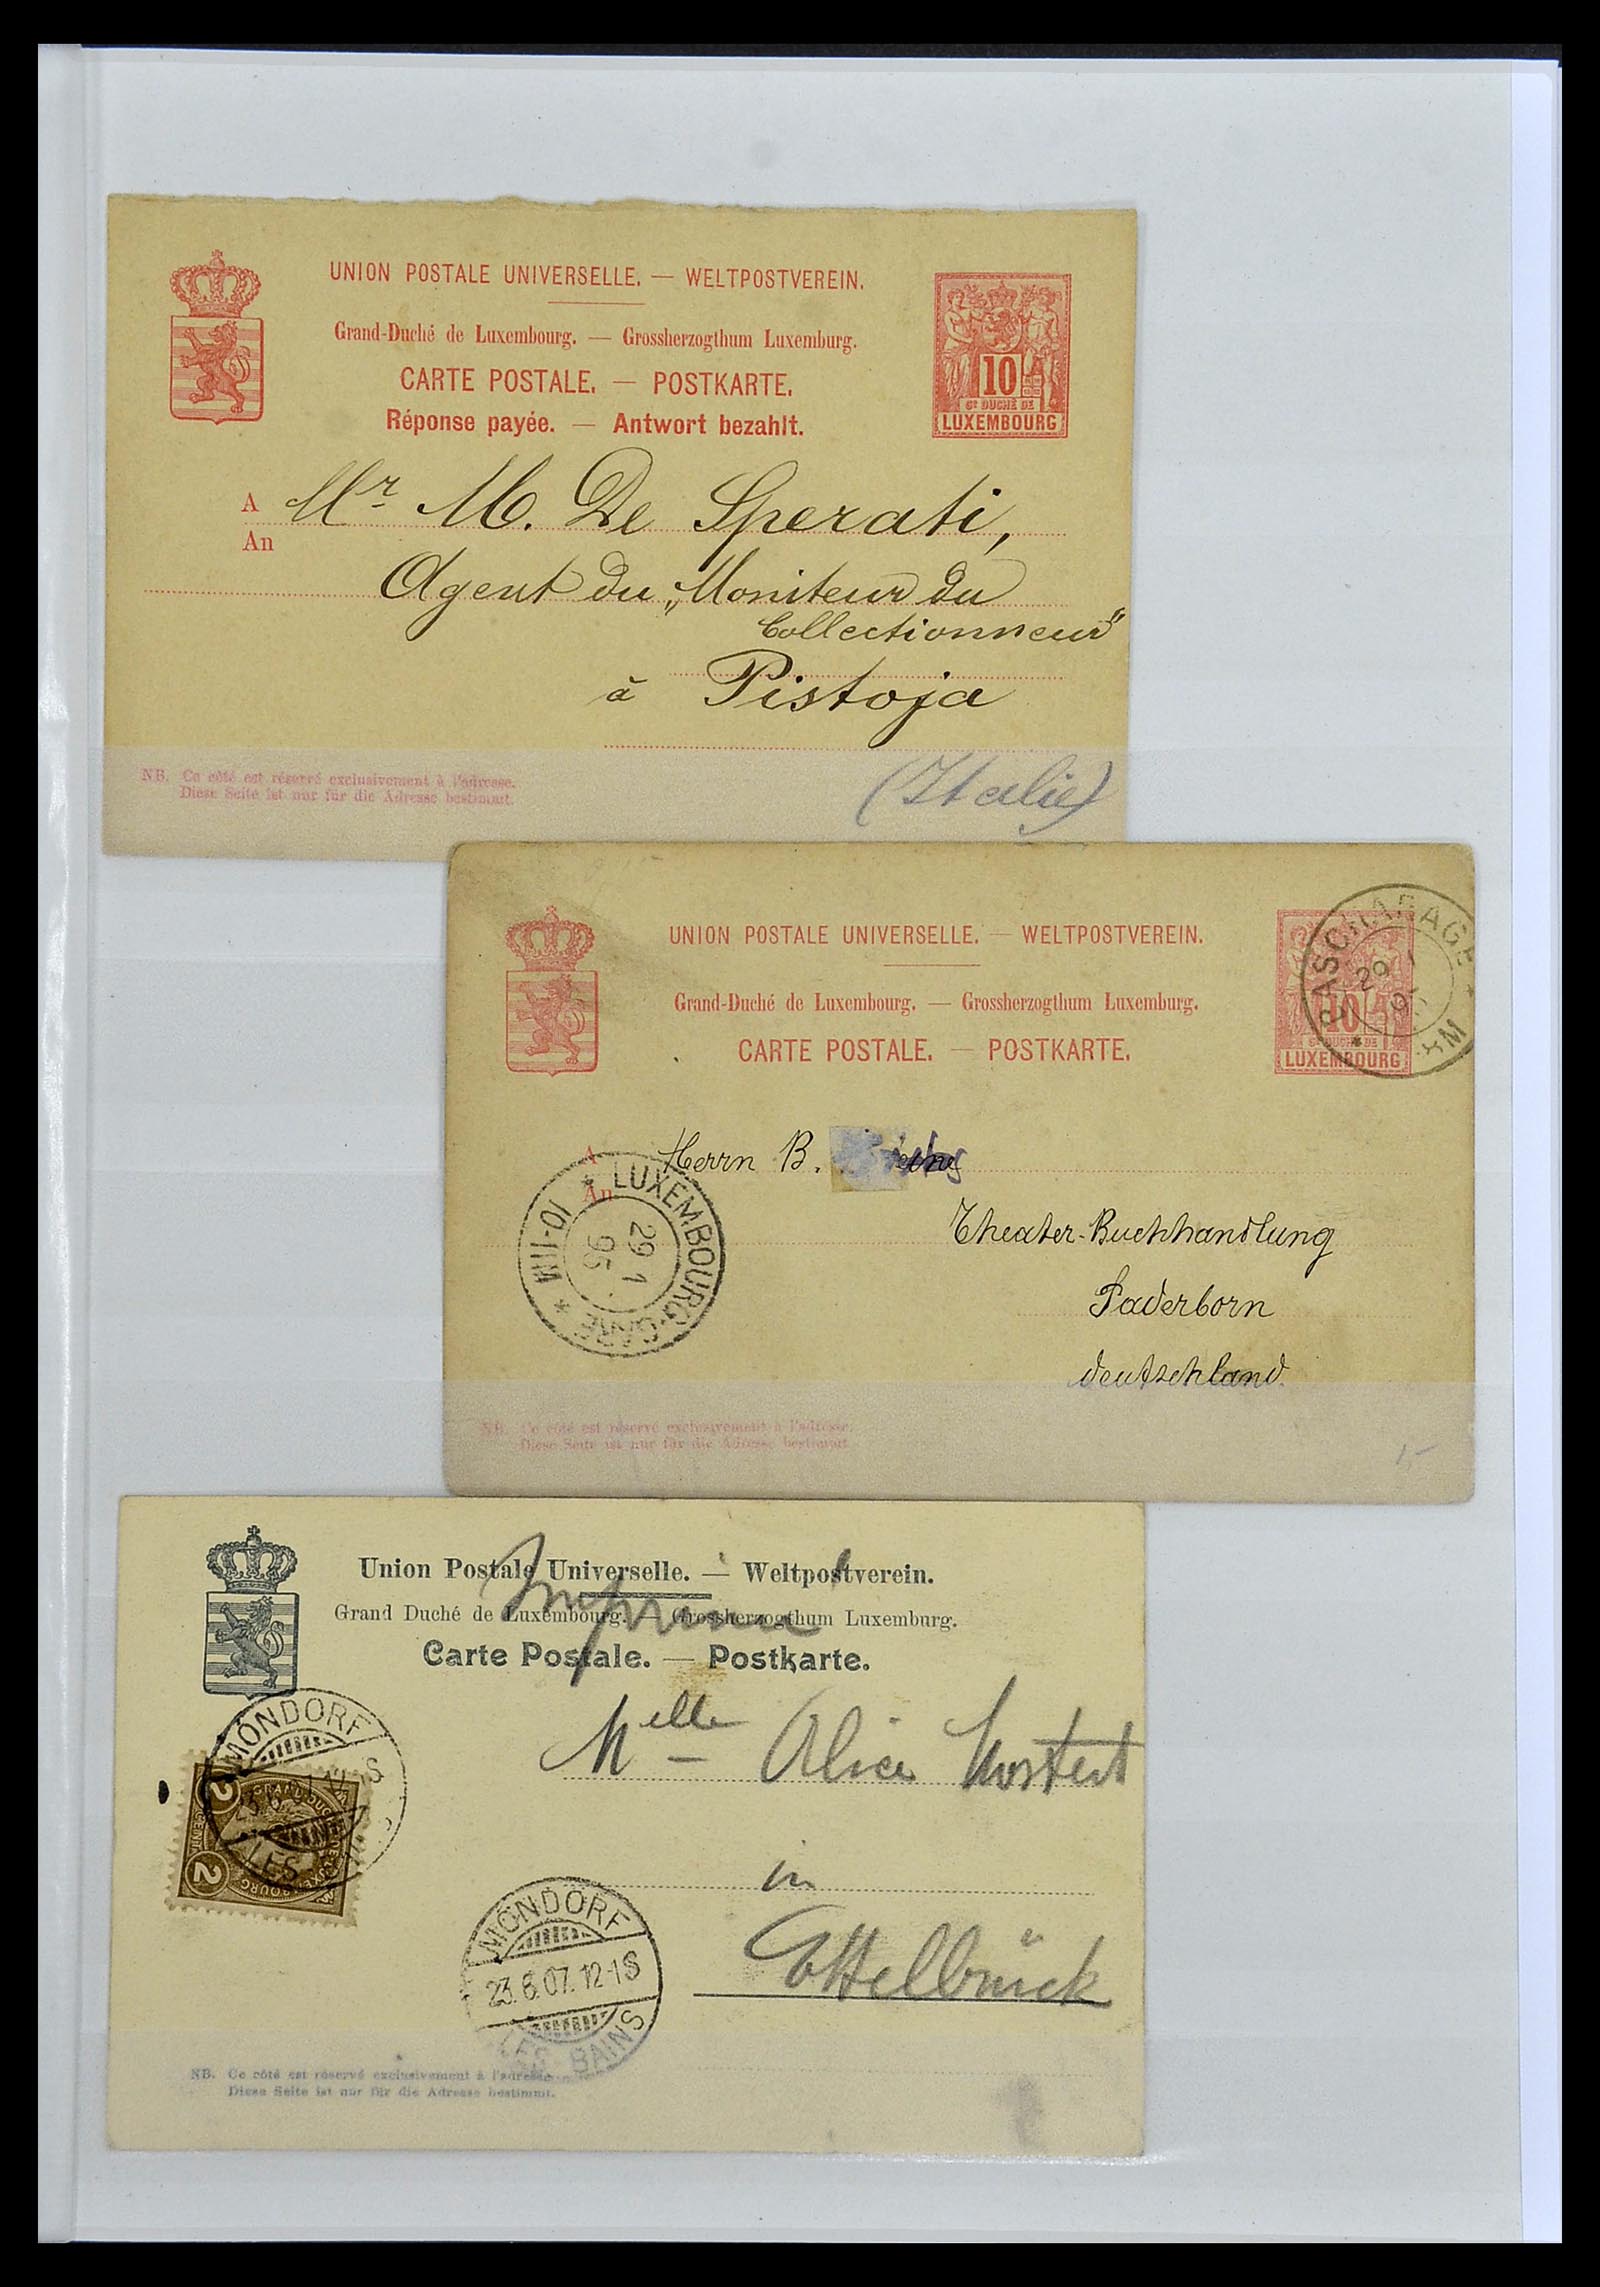 UNION POSTALE UNIVERSELLE. — WELTPOSTVEREIN.
Grand-Duché de Luxembourg. — Grossherzogthum Luxemburg.
CARTE POSTALE. — POSTKARTE.
Réponse payée. — Antwort bezahlt.
10
Gᵈ DUCHÉ DE
LUXEMBOURG
A
An
Mr M. De Sperati,
Agent du „Moniteur du
Collectionneur"
à Pistoja
(Italie)
NB. Ce côté est réservé exclusivement à l'adresse.
Diese Seite ist nur für die Adresse bestimmt.
UNION POSTALE UNIVERSELLE. — WELTPOSTVEREIN.
Grand-Duché de Luxembourg. — Grossherzogthum Luxemburg.
CARTE POSTALE. — POSTKARTE.
10
Gᵈ DUCHÉ DE
LUXEMBOURG
BASCHARAGE
29 1
A
An
Herrn B.
LUXEMBOURG-GARE
29 1
95
VIII-IX
Theater-Buchhandlung
Paderborn
Deutschland.
NB. Ce côté est réservé exclusivement à l'adresse.
Diese Seite ist nur für die Adresse bestimmt.
15
Union Postale Universelle. — Weltpostverein.
Grand Duché de Luxembourg. — Grossherzogthum Luxemburg.
Carte Postale. — Postkarte.
Imprimé
Melle Alice Mostert
in
Ettelbrück
MONDORF
LES
2
2
MONDORF
23.6.07.12-1S
LES BAINS
NB. Ce côté est réservé exclusivement à l'adresse.
Diese Seite ist nur für die Adresse bestimmt.